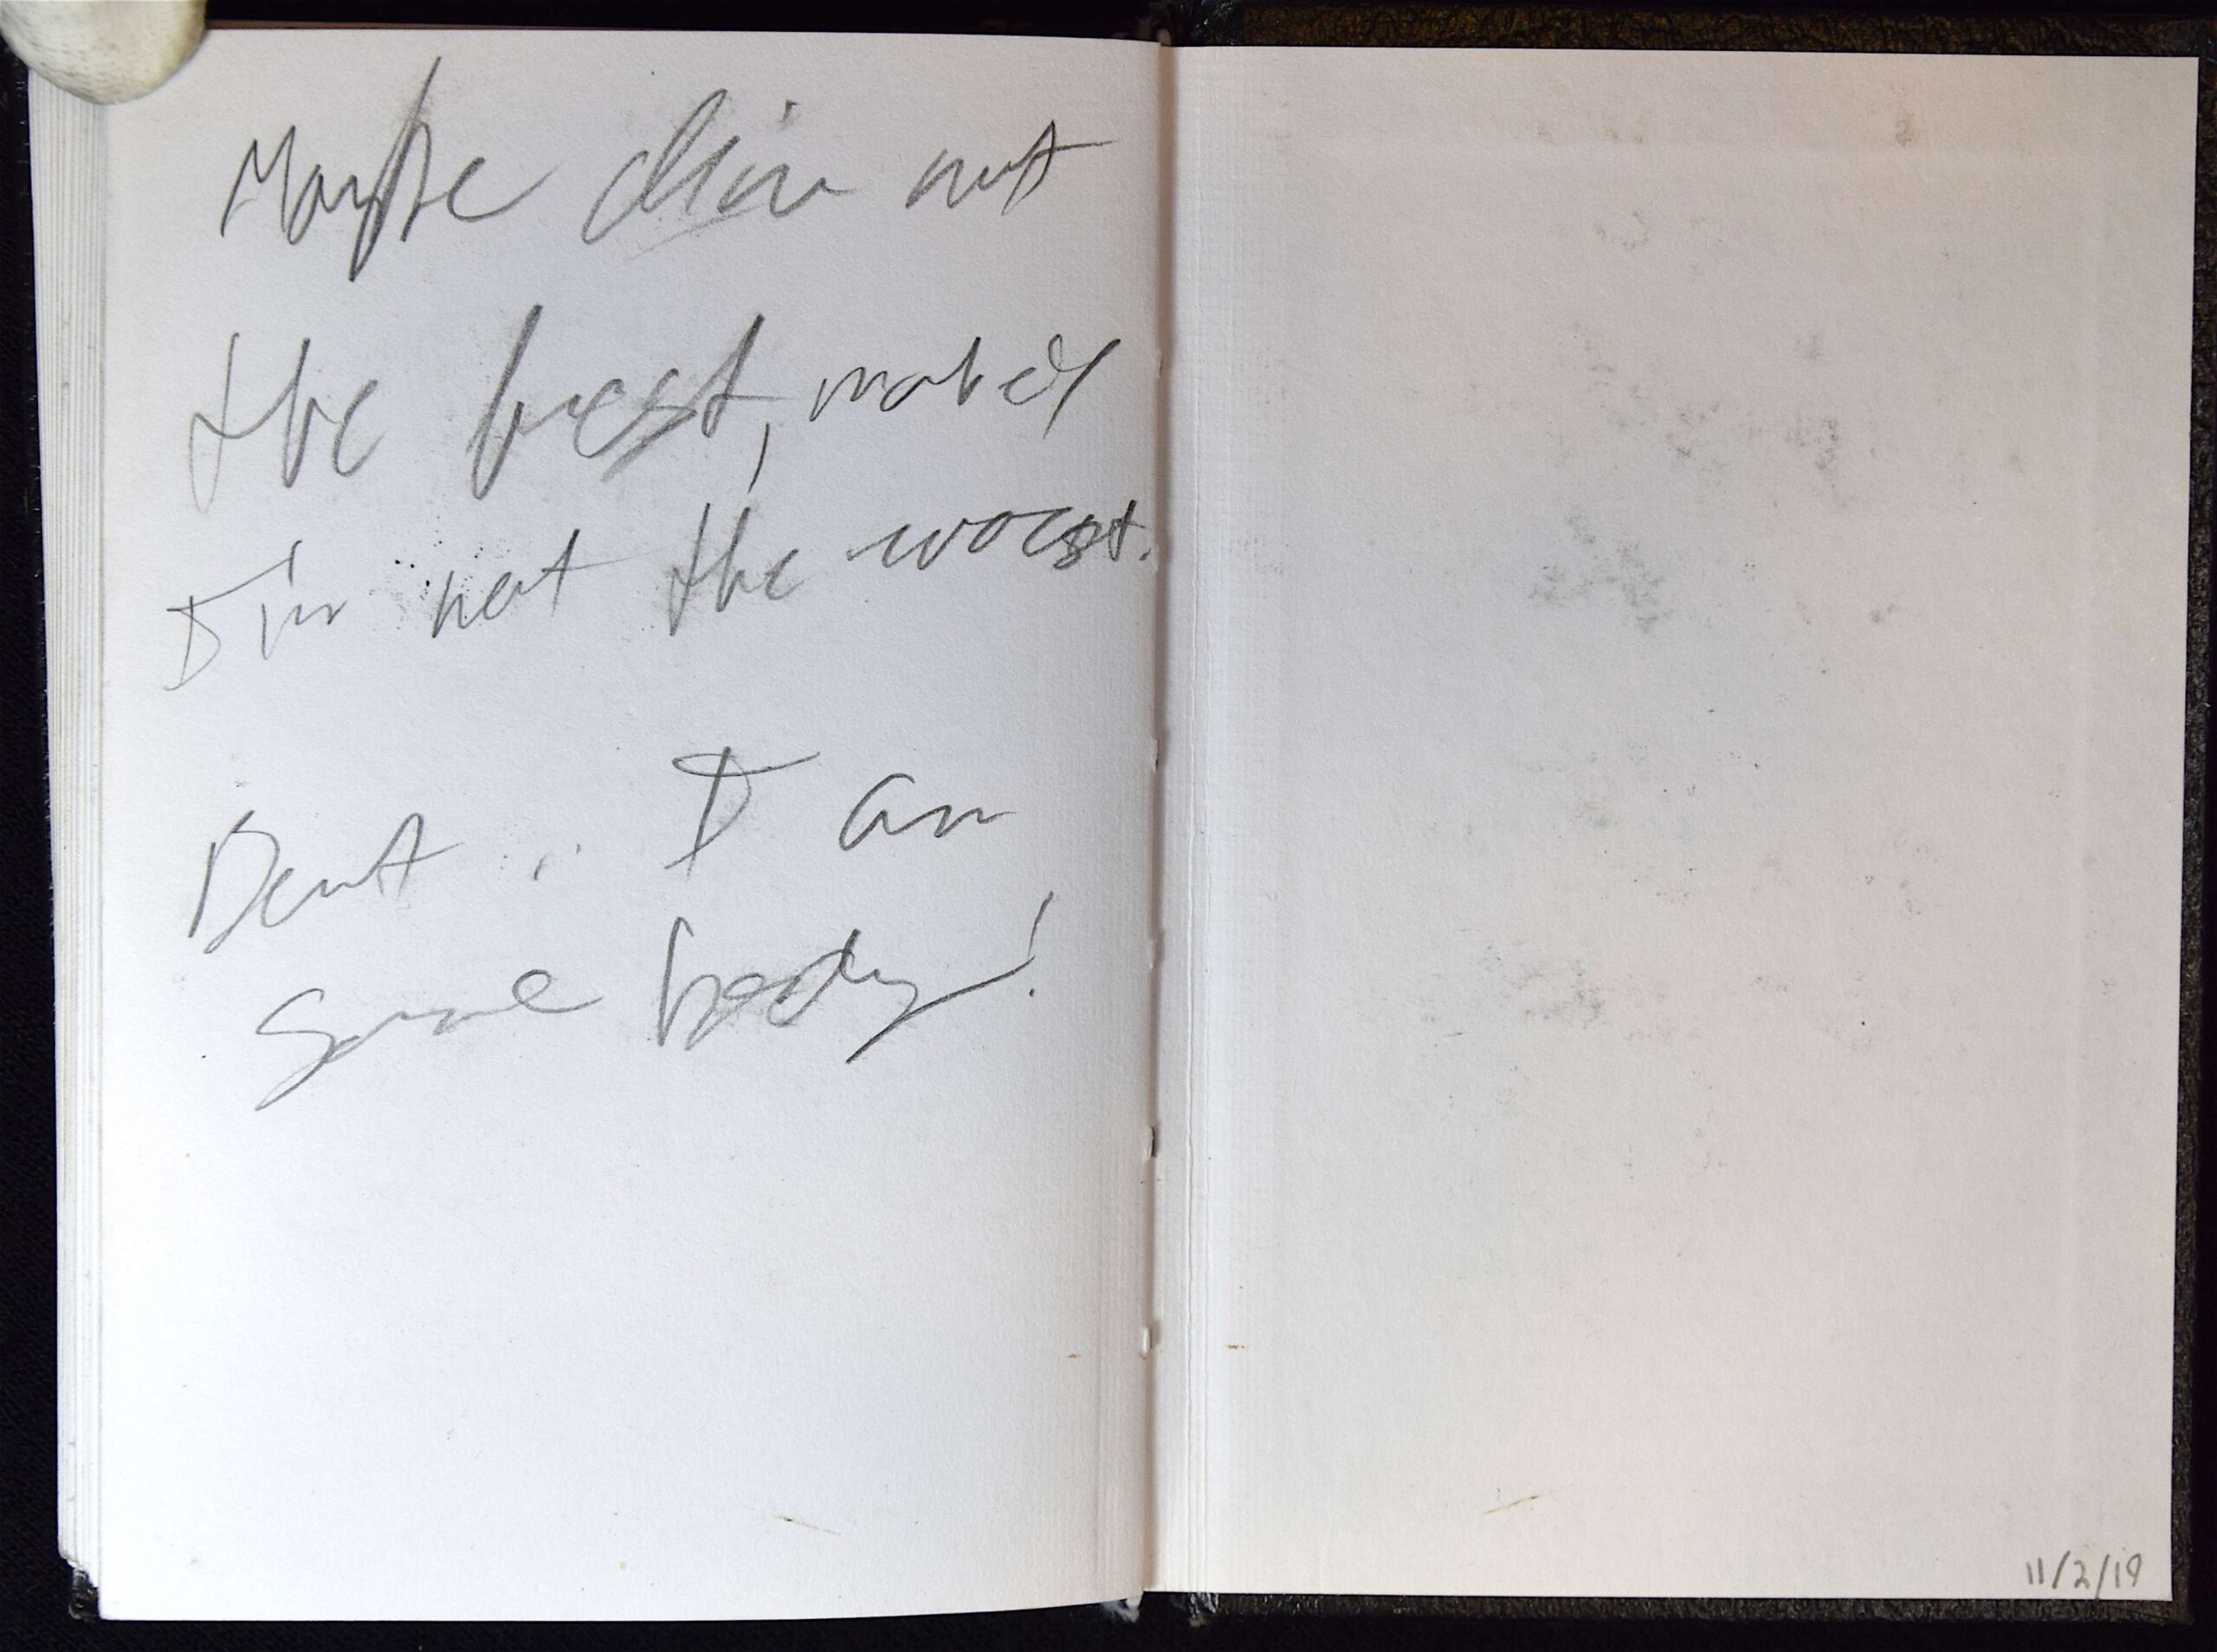 Maybe I'm not
the best, maybe
I'm not the worst.
But .. I am
some body!
11/2/19